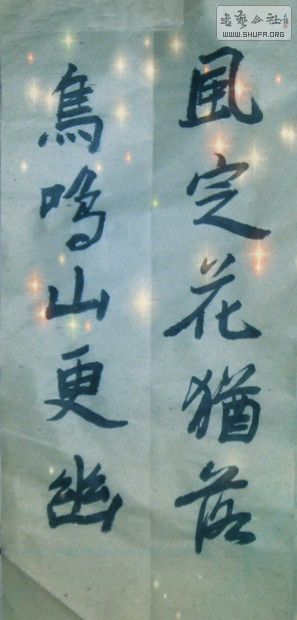 書藝公社
WWW.SHUFA.ORG
風定花猶落
鳥鳴山更幽